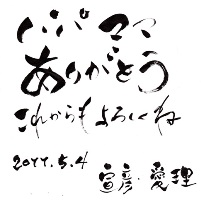 パパ ママ
ありがとう
これからもよろしくね
2011.5.4
宣彦 愛理